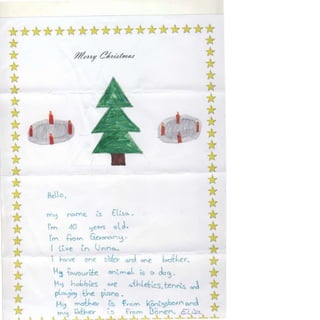 Merry Christmas
Hello,
my name is Elisa.
I'm 10 years old.
I'm from Germany.
I live in Unna.
I have one sister and one brother.
My favourite animal is a dog.
My hobbies are athletics, tennis and
playing the piano.
My mother is from Königsborn and
my father is from Bönen. Elisa